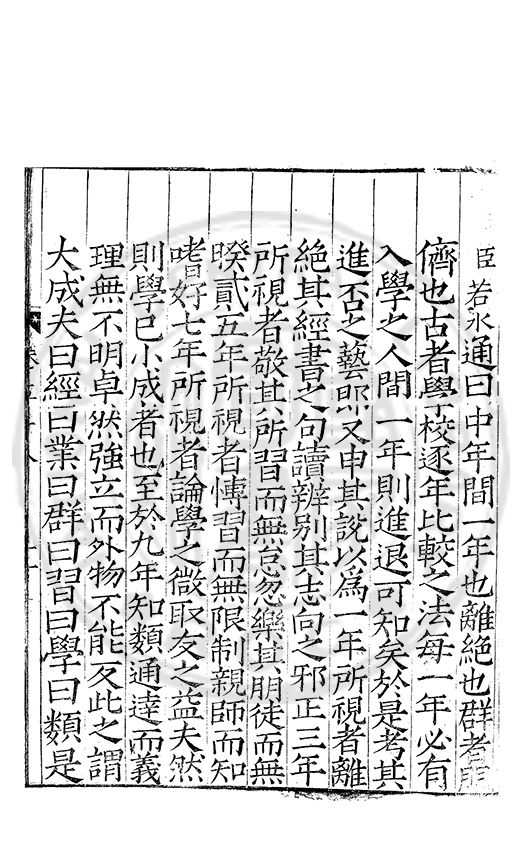 臣若水通曰中年間一年也離絶也群者朋
儕也古者學校逐年比較之法每一年必有
入學之人間一年則進退可知矣於是考其
進否之藝郎又申其說以爲一年所視者離
絶其經書之句讀辨别其志向之邪正三年
所視者敬其所習而無怠忽樂其朋徒而無
暌貳五年所視者慱習而無限制親師而知
嗜好七年所視者論學之微取友之益夫然
則學已小成者也至於九年知類通達而義
理無不明卓然強立而外物不能反此之謂
大成夫曰經曰業曰群曰習曰學曰類是